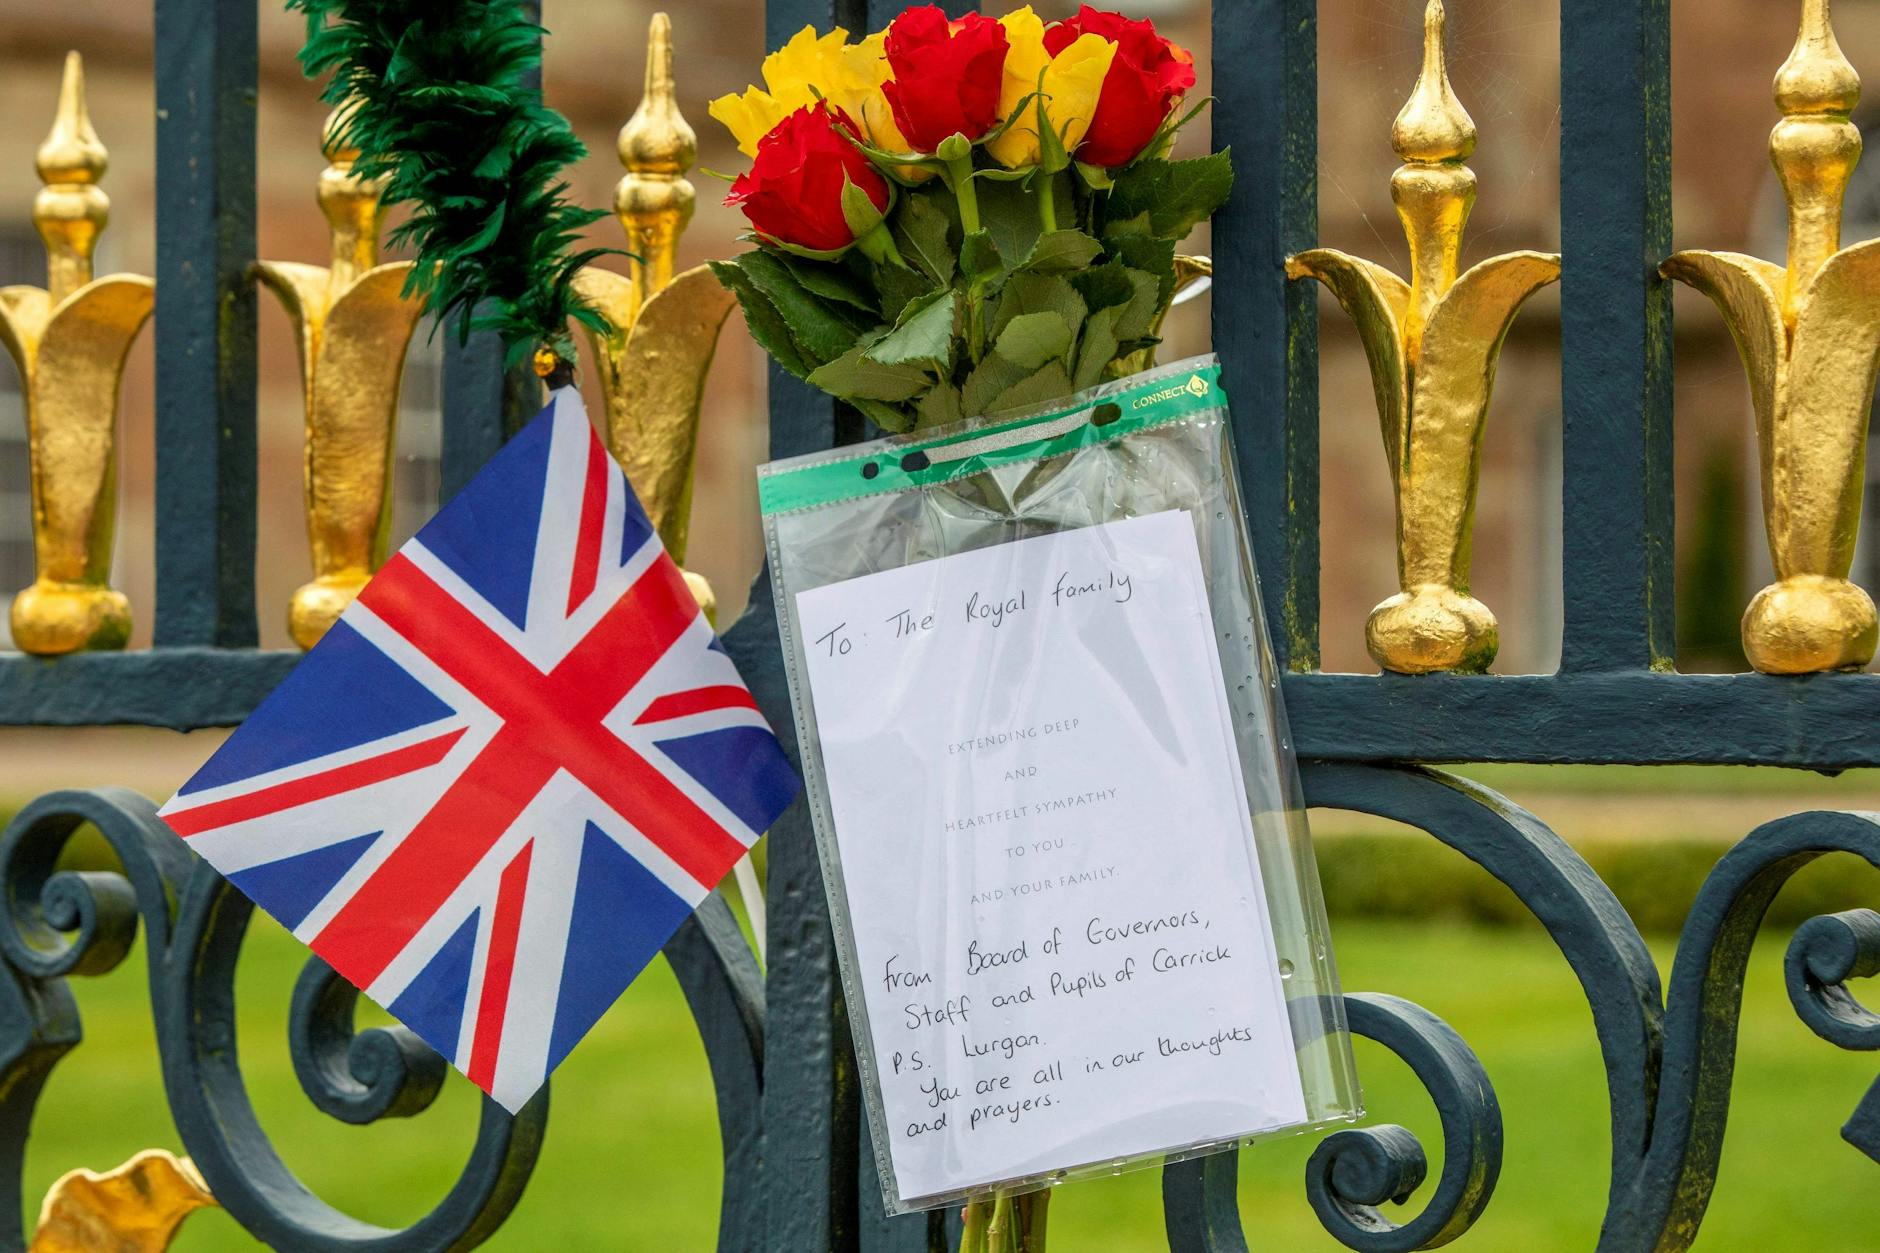 CONNECT
To: The Royal family
EXTENDING DEEP
AND
HEARTFELT SYMPATHY
TO YOU
AND YOUR FAMILY.
From Board of Governors,
Staff and Pupils of Carrick
P.S. Lurgan.
You are all in our thoughts
and prayers.